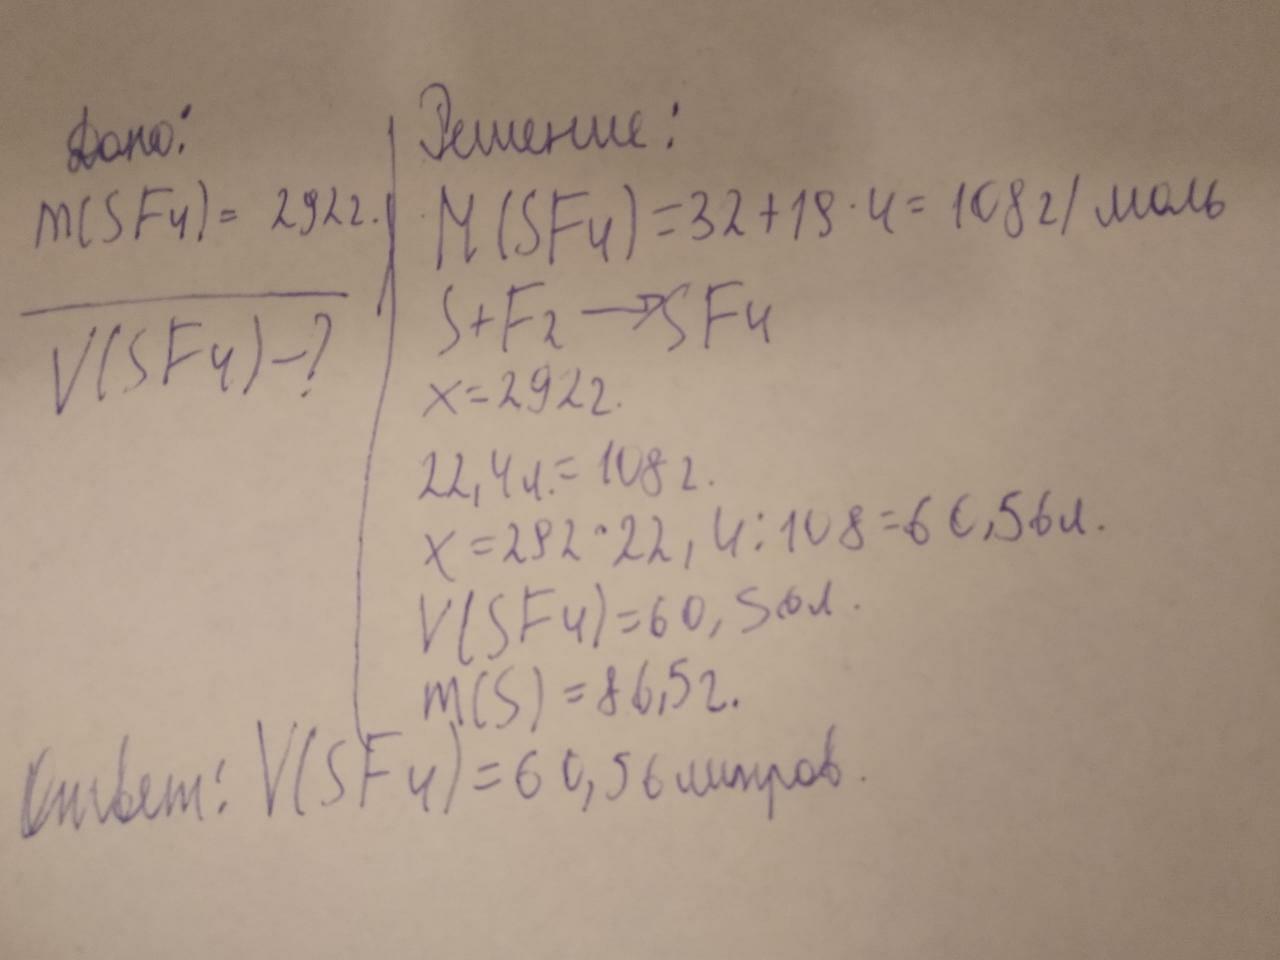 Дано:
m(SF4)= 292г.
V(SF4)-?
Решение:
M(SF4)=32+19·4=108г/моль
S+F2→SF4
x=292г.
22,4л.=108г.
x=292·22,4:108=60,56л.
V(SF4)=60,56л.
m(S)=86,5г.
Ответ: V(SF4)=60,56литров.